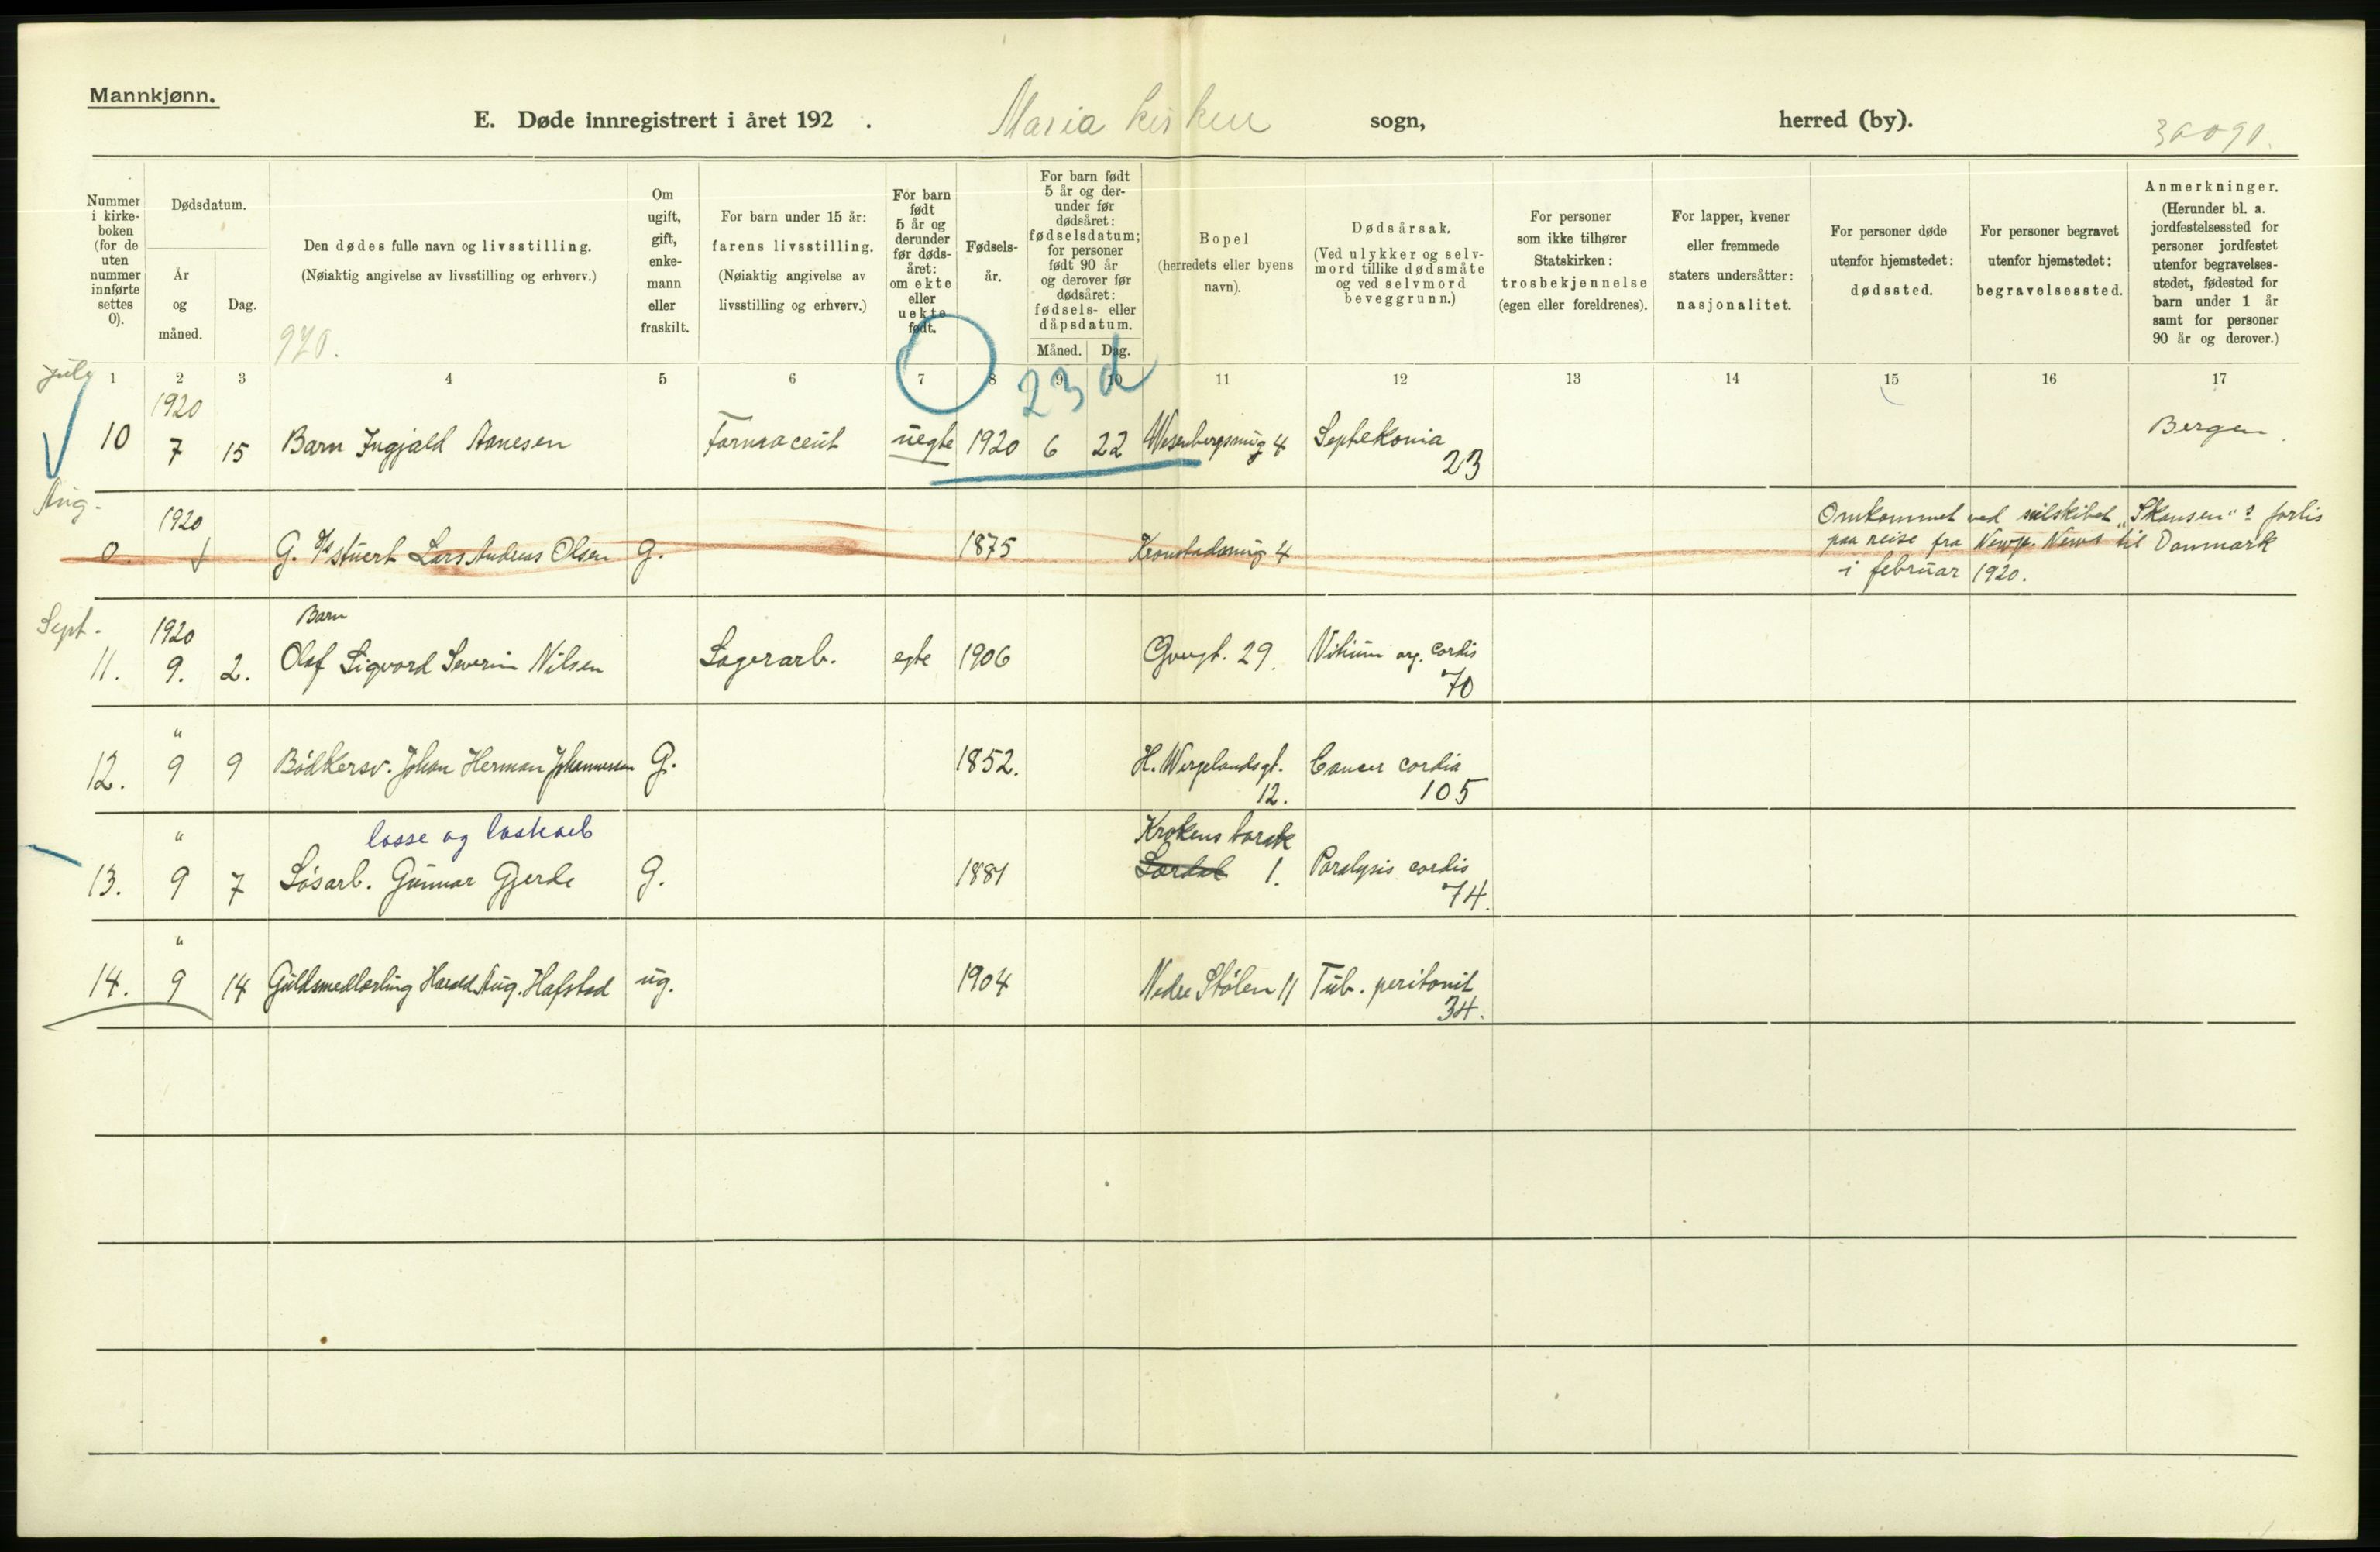 Mannkjønn.
E. Døde innregistrert i året 192 .
Maria kirken
sogn,
herred (by).
Nummer i kirke-boken (for de uten nummer innførte settes 0).
Dødsdatum.
År og måned.
Dag.
Den dødes fulle navn og livsstilling.
(Nøiaktig angivelse av livsstilling og erhverv.)
920.
Om ugift, gift, enke-mann eller fraskilt.
For barn under 15 år: farens livsstilling.
(Nøiaktig angivelse av livsstilling og erhverv.)
For barn født 5 år og derunder før døds-året: om ekte eller uekte født.
Fødsels-år.
For barn født 5 år og der-under før dødsåret: fødselsdatum; for personer født 90 år og derover før dødsåret: fødsels- eller dåpsdatum.
Måned.
Dag.
Bopel (herredets eller byens navn).
Dødsårsak.
(Ved ulykker og selv-mord tillike dødsmåte og ved selvmord beveggrunn.)
For personer som ikke tilhører Statskirken: trosbekjennelse (egen eller foreldrenes).
For lapper, kvener eller fremmede staters undersåtter: nasjonalitet.
For personer døde utenfor hjemstedet: dødssted.
For personer begravet utenfor hjemstedet: begravelsessted.
Anmerkninger.
(Herunder bl. a. jordfestelsessted for personer jordfestet utenfor begravelses-stedet, fødested for barn under 1 år samt for personer 90 år og derover.)
1 2 3 4 5 6 7 8 9 10 11 12 13 14 15 16 17
July
23 d
1920
10 7 15 Barn Ingjald Aanesen Farmaceut uegte 1920 6 22 Wesenbergsmug 4 Septekomia 23 Bergen
Aug.
1920
0 G. stuert Lars Andreas Olsen G. 1875 Kronstadsmug 4
Omkommet ved seilskibet „Skansen"s forlis
paa reise fra Newp. News til Danmark
i februar 1920.
Sept.
1920 Barn
11. 9. 2. Olaf Sigvard Severin Nilsen Lagerarb. egte 1906 29. Vitium org. cordis
70
"
12. 9 9 Bødkersv. Johan Herman Johannessen G. 1852. H. Wergelandsgt. Cancer cordia
12. 105
" losse og lastearb Krokens barak
13. 9 7 Løsarb. Gunnar Gjerde G. 1881 1. Paralysis cordis
74.
"
14. 9 14 Guldsmedlærling Harald Aug. Hafstad ug. 1904 Nedre Stølen 11 Tub. peritonit
34.